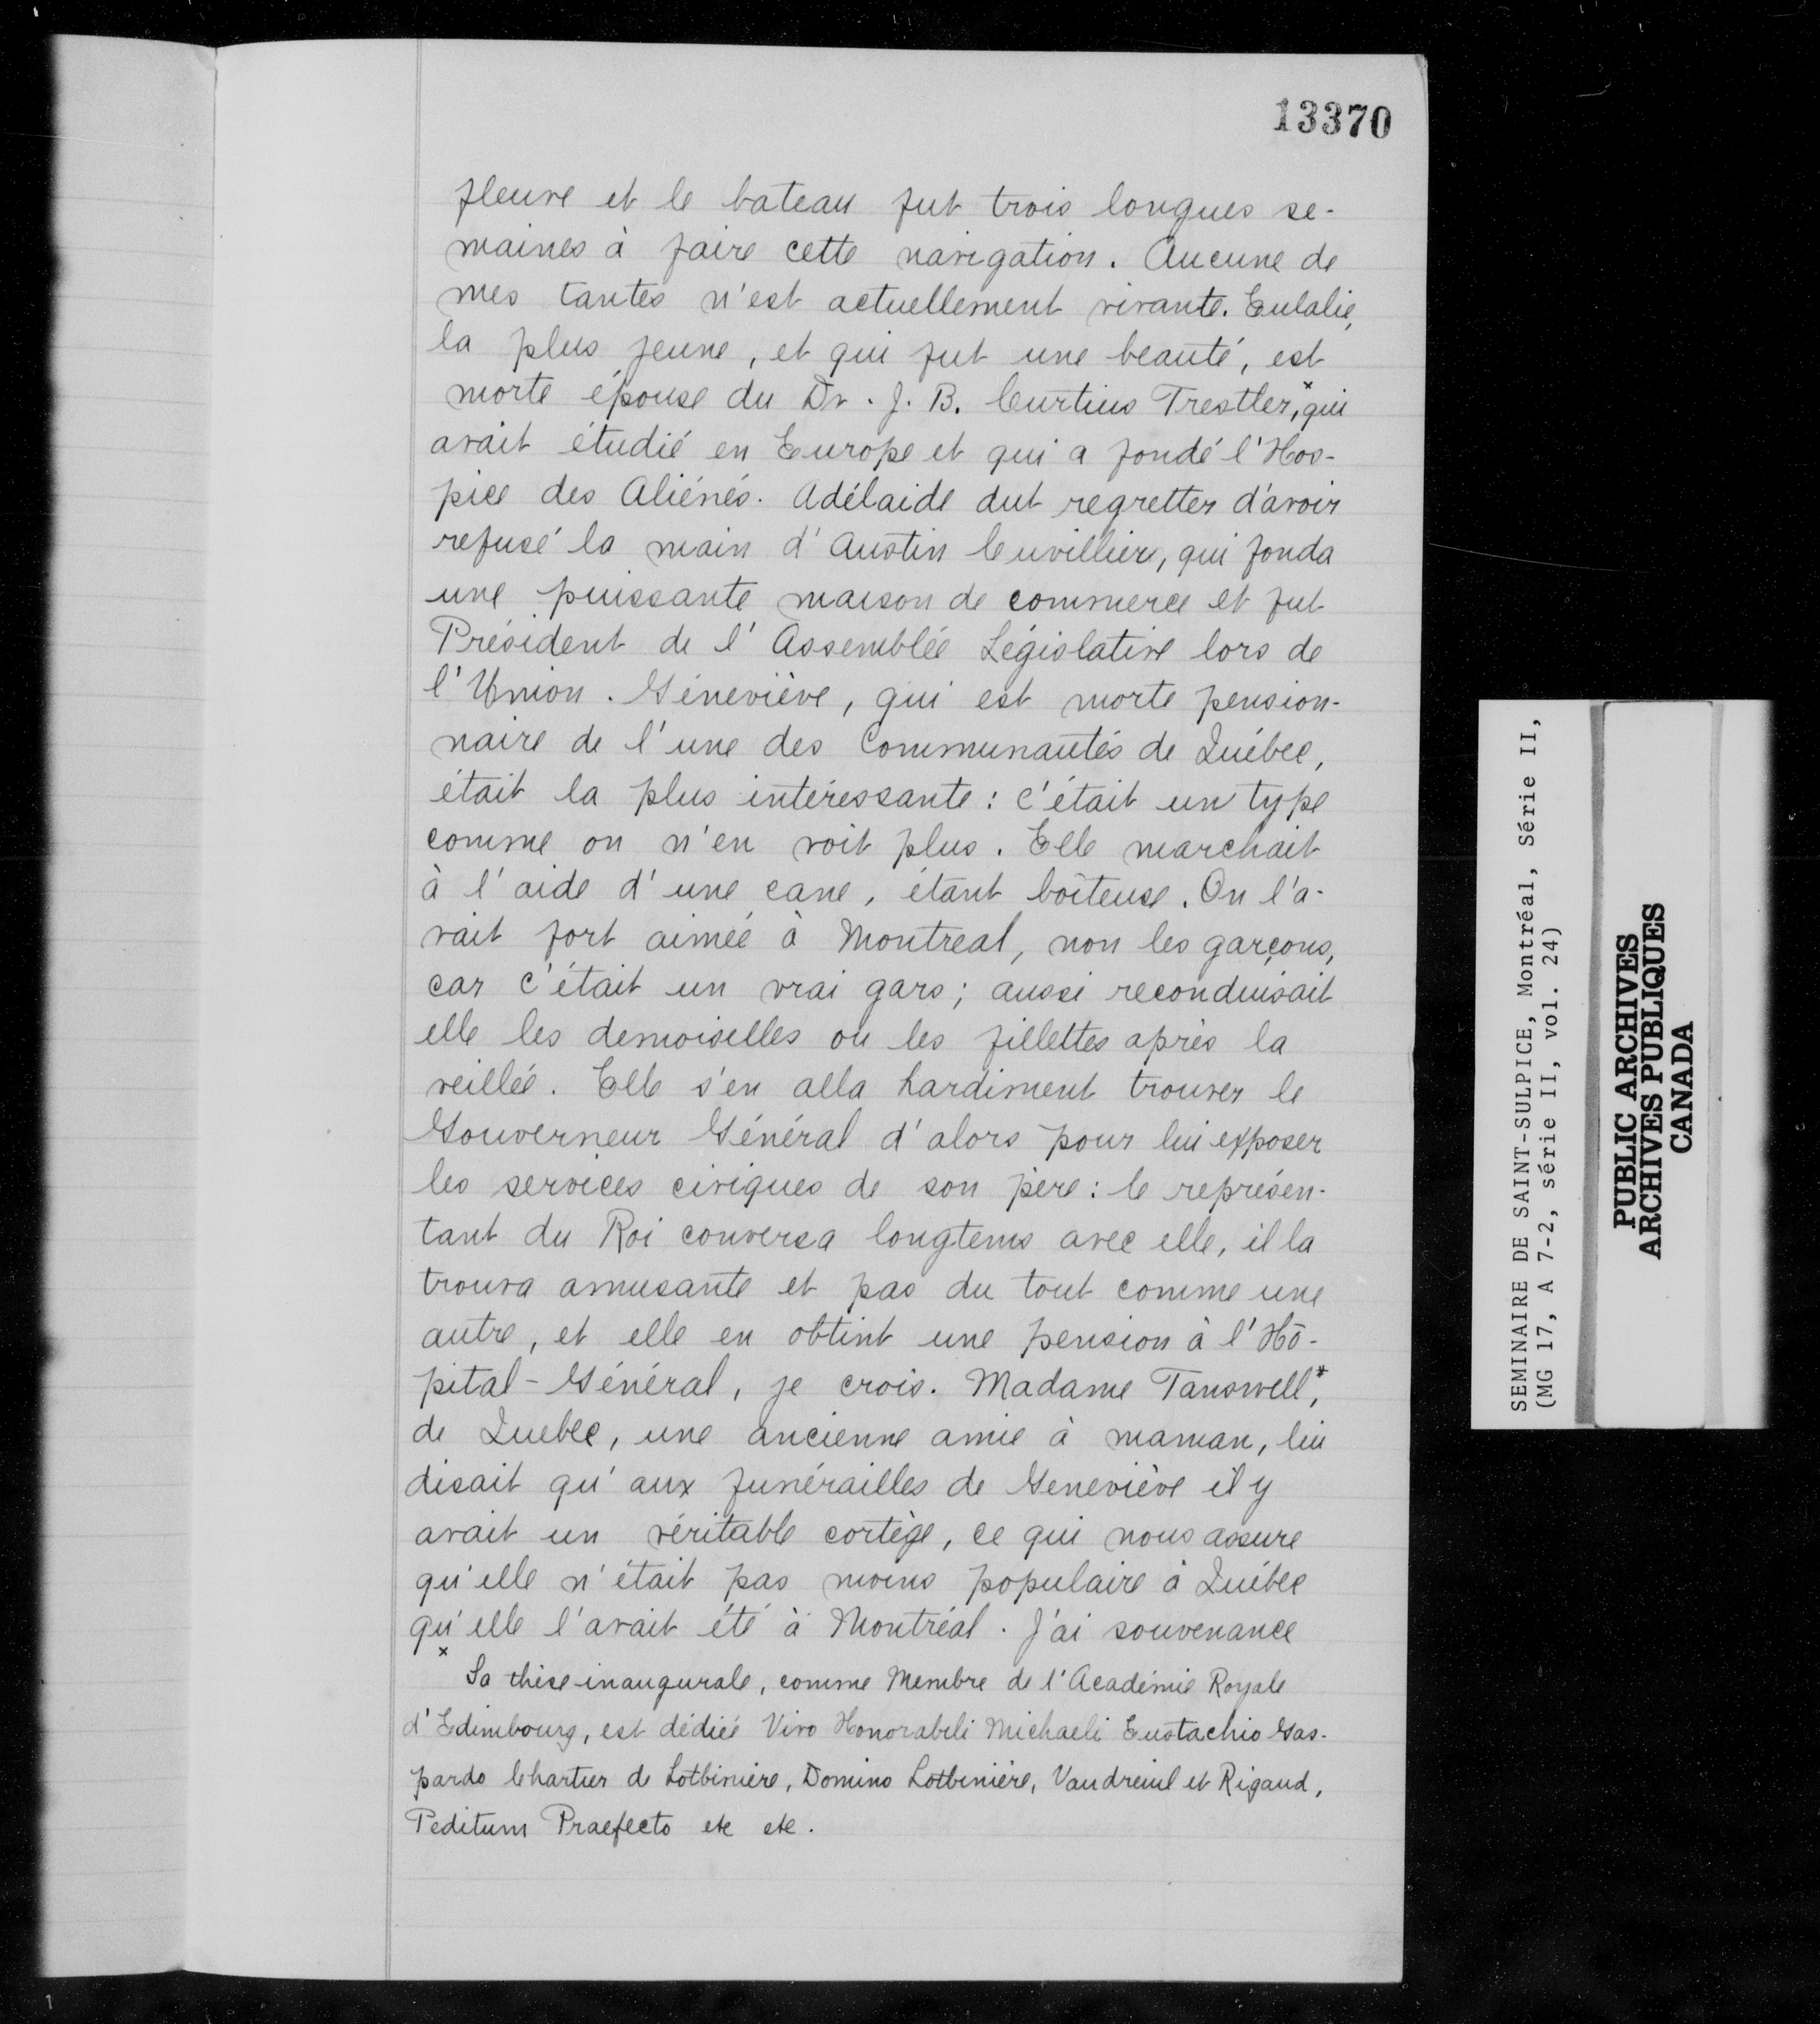 13370
fleuve et le bateau fut trois longues se-
maines à faire cette navigation. Aucune de
mes tantes n'est actuellement vivante. Eulalie,
la plus jeune, et qui fut une beauté, est
morte épouse du Dr. J. B. Curtius Trestler,* qui
avait étudié en Europe et qui a fondé l'Hos-
pice des Aliénés. Adélaide dut regretter d'avoir
refusé la main d'Austin Cuvillier, qui fonda
une puissante maison de commerce et fut
Président de l'Assemblée Législative lors de
l'Union. Géneviève, qui est morte pension-
naire de l'une des Communautés de Québec,
était la plus intéressante: c'était un type
comme on n'en voit plus. Elle marchait
à l'aide d'une cane, étant boîteuse. On l'a-
vait fort aimée à Montreal, non les garçons,
car c'était un vrai gars; aussi reconduisait
elle les demoiselles ou les fillettes après la
veillée. Elle s'en alla hardiment trouver le
Gouverneur Général d'alors pour lui exposer
les services civiques de son père: le représen-
tant du Roi conversa longtems avec elle, il la
trouva amusante et pas du tout comme une
autre, et elle en obtint une pension à l'Hô-
pital-Général, je crois. Madame Tanswell*,
de Quebec, une ancienne amie à maman, lui
disait qu'aux funérailles de Geneviève il y
avait un véritable cortège, ce qui nous assure
qu'elle n'était pas moins populaire à Québec
qu'elle l'avait été à Montréal. J'ai souvenance
x Sa thèse inaugurale, comme Membre de l'Académie Royale
d'Edimbourg, est dédiée Viro Honorabili Michaeli Eustachio Gas-
pardo Chartier de Lotbinière, Domino Lotbinière, Vaudreuil et Rigaud,
Peditum Praefecto etc etc.
SEMINAIRE DE SAINT-SULPICE, Montréal, Série II,
(MG 17, A 7-2, série II, vol. 24)
PUBLIC ARCHIVES
ARCHIVES PUBLIQUES
CANADA